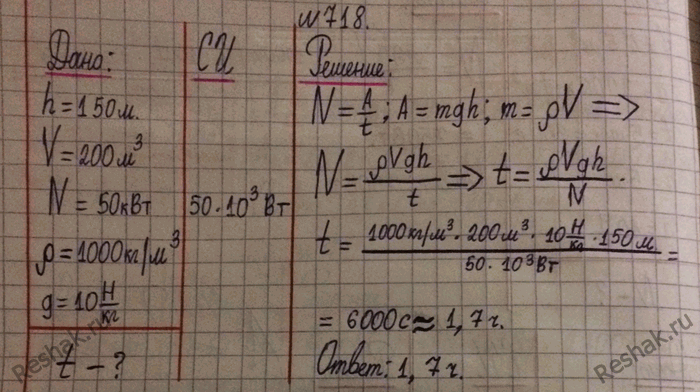 №718.
Дано:
h = 150 м.
V = 200 м³
N = 50 кВт
ρ = 1000 кг/м³
g = 10 Н/кг
t - ?
СИ
50 · 10³ Вт
Решение:
N = A/t ; A = mgh; m = ρV =>
N = ρVgh/t => t = ρVgh/N.
t = 1000 кг/м³ · 200 м³ · 10 Н/кг · 150 м / 50 · 10³ Вт =
= 6000 с ≈ 1,7 ч.
Ответ: 1,7 ч.
Reshak.ru
Reshak.ru